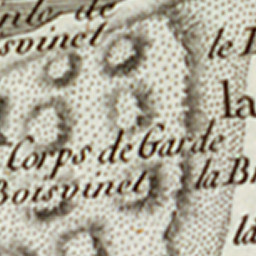 de
svinet
le
la
Corps de Garde
Boisvinet
la B
la